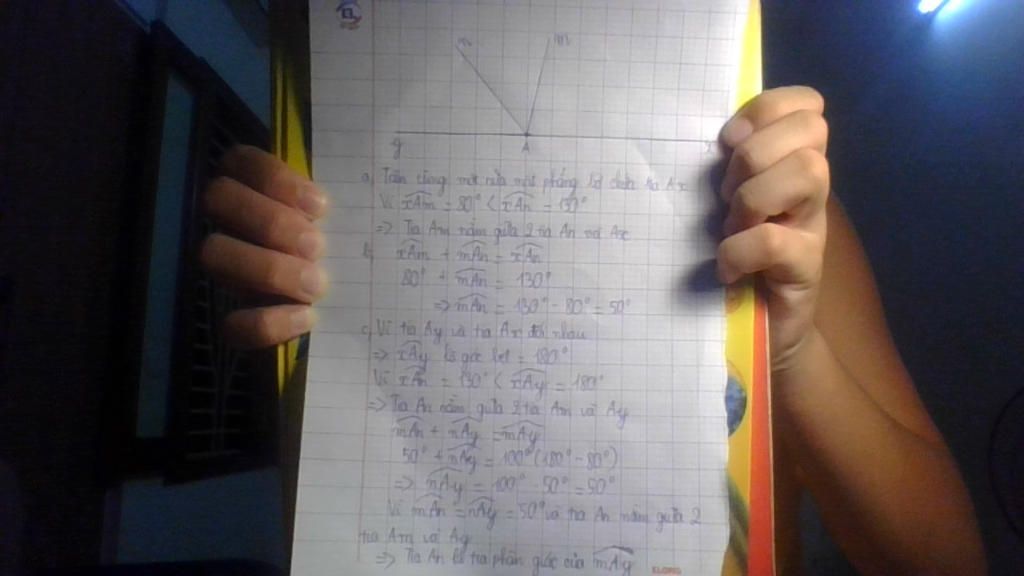 n m
y A x
a, Trên cùng một nửa mặt phẳng bờ chứa tia Ax
Vì xAm = 80° < xAn = 130°
=> Tia Am nằm giữa 2 tia An và Ax
b, xAm + mAn = xAn
80° + mAn = 130°
=> mAn = 130° - 80° = 50°
c, Vì tia Ay và tia Ax đối nhau
=> xAy là góc bẹt = 180°
Vì xAn = 130° < xAy = 180°
=> Tia An nằm giữa 2 tia Am và Ay
mAn + nAy = mAy
50° + nAy = 100° (180° - 80°)
=> nAy = 100° - 50° = 50°
Vì mAn = nAy = 50° và tia An nằm giữa 2
tia Am và Ay
=> Tia An là tia phân giác của mAy
KLONG